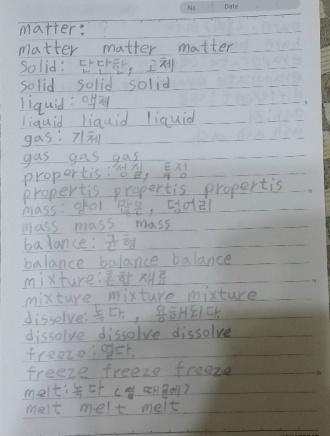 No.
Date
matter:
matter matter matter
Solid: 단단한, 고체
Solid Solid Solid
liquid: 액체
liquid liquid liquid
gas: 기체
gas gas gas
propertis: 성질, 특징
propertis propertis propertis
mass: 양이 많은, 덩어리
mass mass mass
balance: 균형
balance balance balance
mixture: 혼합 재료
mixture mixture mixture
dissolve: 녹다, 용해되다
dissolve dissolve dissolve
freeze: 얼다.
freeze freeze freeze
melt: 녹다 (열 때문에)
melt melt melt